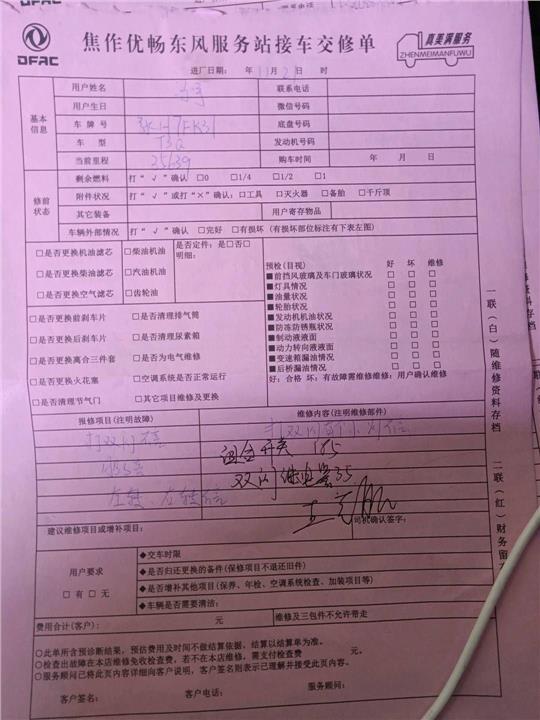 DFAC
焦作优畅东风服务站接车交修单
真美满服务
ZHENMEIMANFUWU
进厂日期: 年 11 月 21 日 时
基本信息
用户姓名
联系电话
用户生日
微信号码
车牌号
底盘号码
车型
发动机号码
当前里程 25639
购车时间 年 月 日
修前状态
剩余燃料 打“√”确认 □0 □1/4 □1/2 □1
附件状况 打“√”或打“×”确认:□工具 □灭火器 □备胎 □千斤顶
其它装备
用户寄存物品
车辆外部情况 打“√”确认 □完好 □有损坏(有损坏部位标注有下表左图)
□是否更换机油滤芯 □柴油机油 是否定件:是□否□
明细:
□是否更换柴油滤芯 □汽油机油
□是否更换空气滤芯 □齿轮油
□是否更换前刹车片 □是否清理排气筒
□是否更换后刹车片 □是否清理尿素箱
□是否更换离合三件套 □是否为电气维修
□是否更换火花塞 □空调系统是否正常运行
□是否清理节气门 □其它项目维修及更换
预检(目视) 好 坏 维修
■前挡风玻璃及车门玻璃状况 □ □ □
■灯具情况 □ □ □
■油量状况 □ □ □
■轮胎状况 □ □ □
■发动机机油状况 □ □ □
■防冻防锈瓶状况 □ □ □
■制动液液面 □ □ □
■动力转向液液面 □ □ □
■变速箱漏油情况 □ □ □
■后桥漏油情况 □ □ □
好:合格 坏:有故障需维修维修:用户确认维修
报修项目(注明故障)
维修内容(注明维修部件)
打双闪
组合开关 185
双闪继电器35
左转、右转
司机确认签字:
建议维修项目或增补项目:
用户要求
□有 □无
◆交车时限
◆是否归还更换的备件(保修项目不退还旧件)
◆是否增补其他项目(保养、年检、空调系统检查、加装项目等)
◆车辆是否需要清洁:
费用合计(客户): 元
维修及三包件不允许带走
○此单所含预诊断结果,预估费用及时间不做结算依据,结算以结算单为准。
○检查出故障在本店维修免收检查费,若不在本店维修,需支付检查费 元。
○服务顾问已将此页内容详细向客户说明,客户签名则表示已理解并接受此页内容。
客户签名: 客户电话: 服务顾问:
一联(白)随维修资料存档
二联(红)财务留